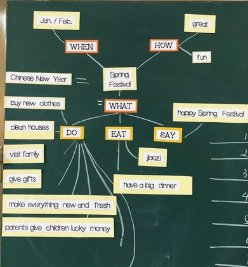 Jan. / Feb.
great
WHEN
HOW
fun
Spring
Festival
Chinese New Year
=
buy new clothes
=
WHAT
happy Spring Festival
clean houses
DO
EAT
SAY
visit family
jiaozi
give gifts
have a big dinner
make everything new and fresh
parents give children lucky money